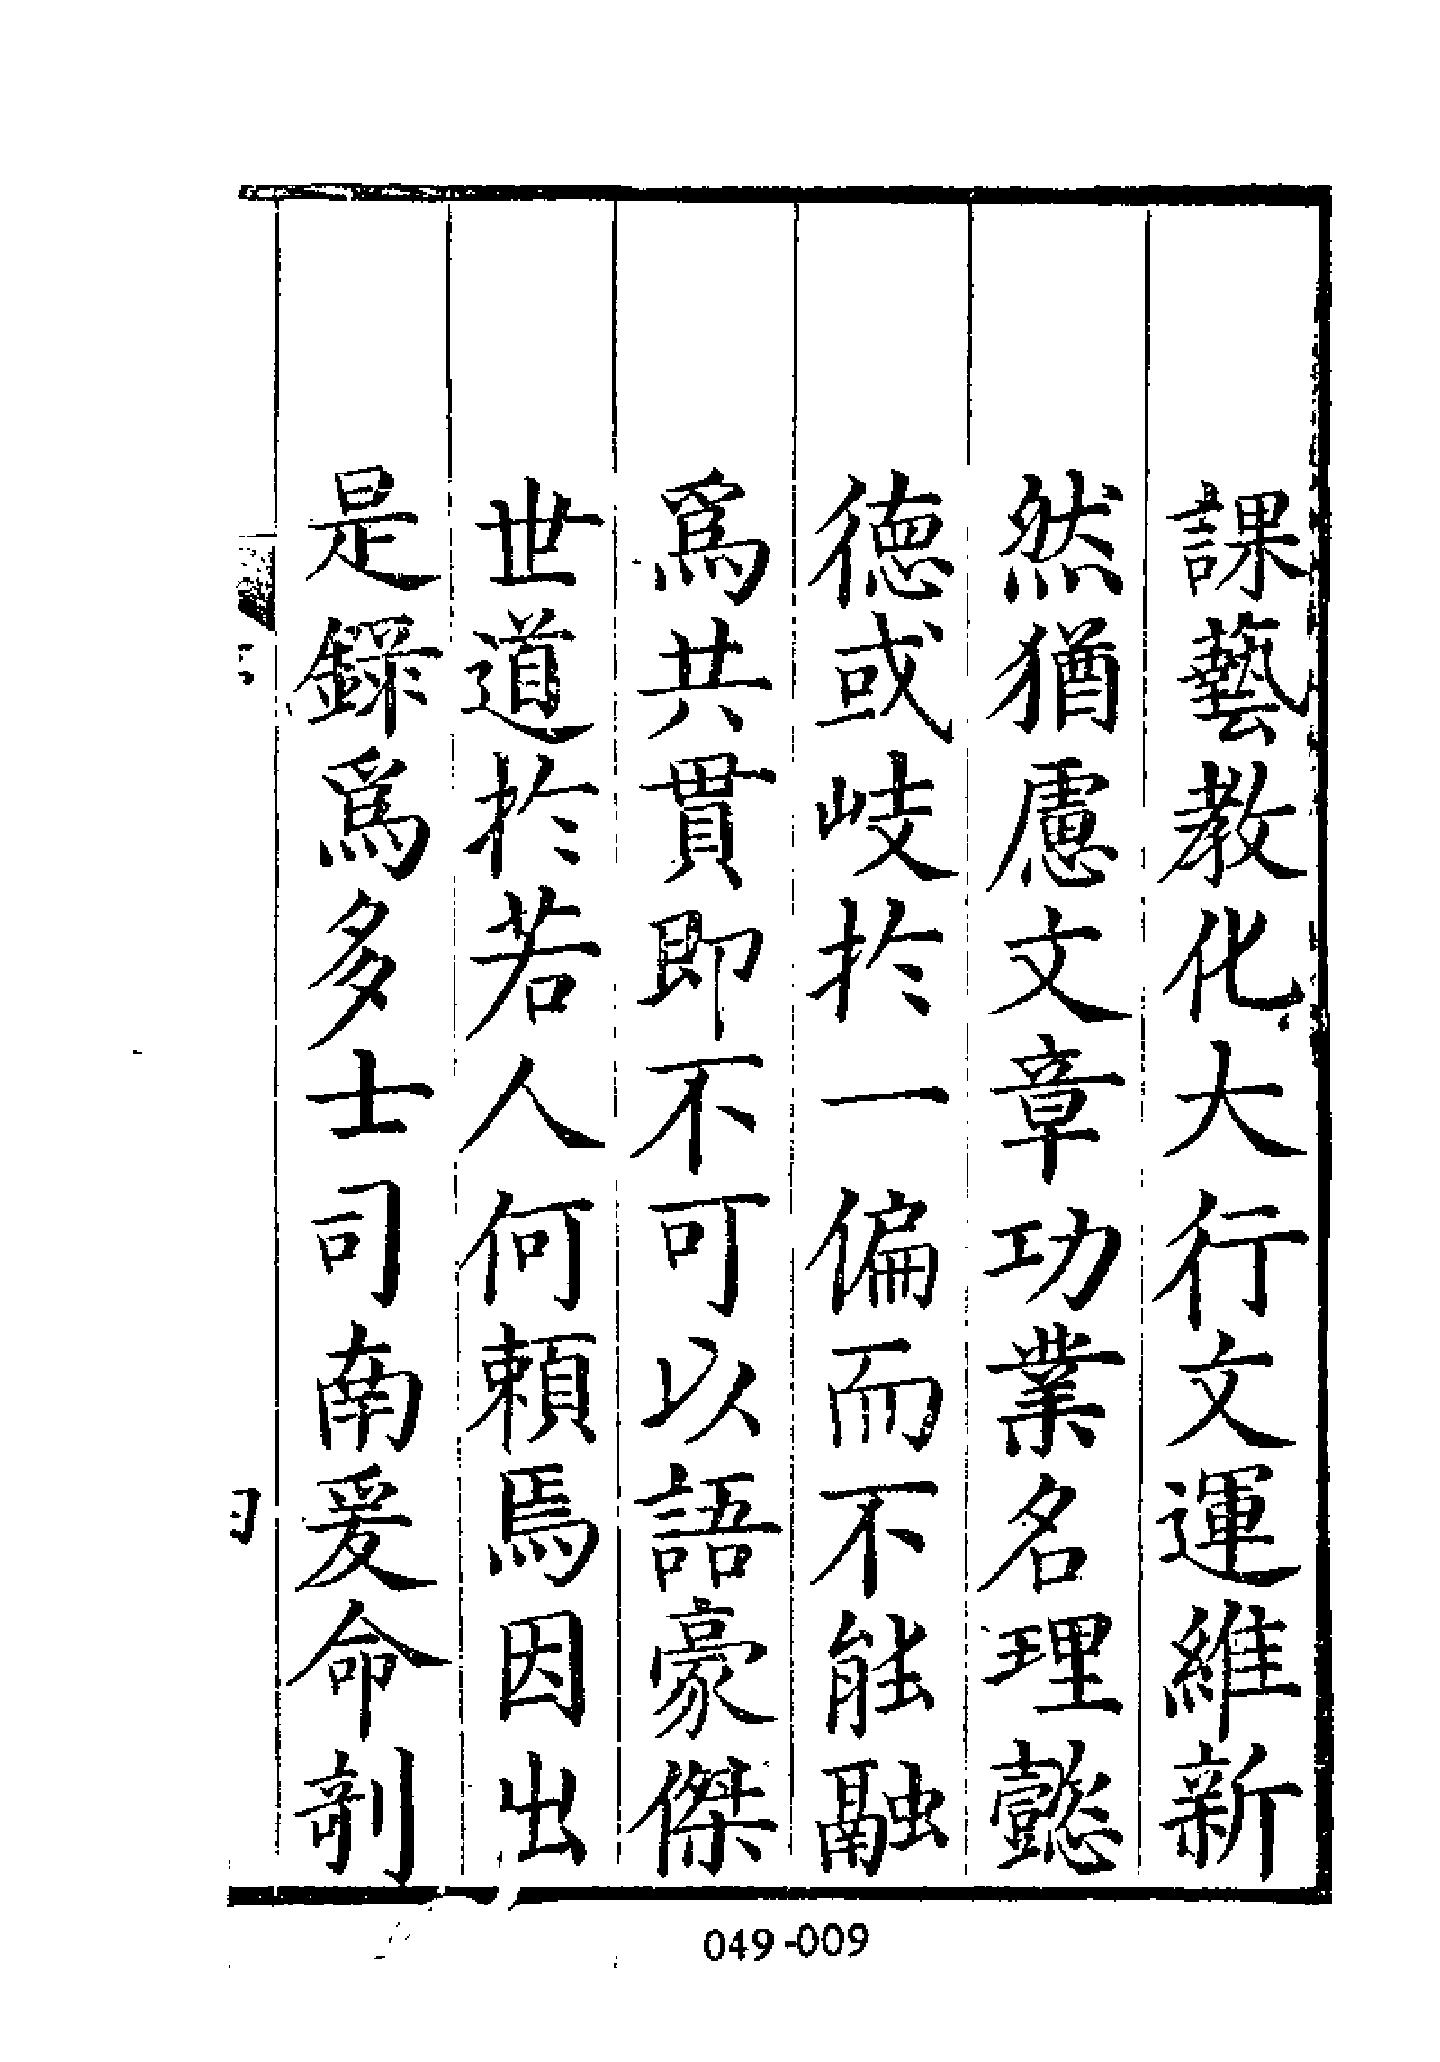 課藝教化大行文運維新
然猶慮文章功業名理懿
德或岐於一偏而不能融
爲共貫即不可以語豪傑
世道於若人何頼焉因出
是録爲多士司南爰命剞
049-009